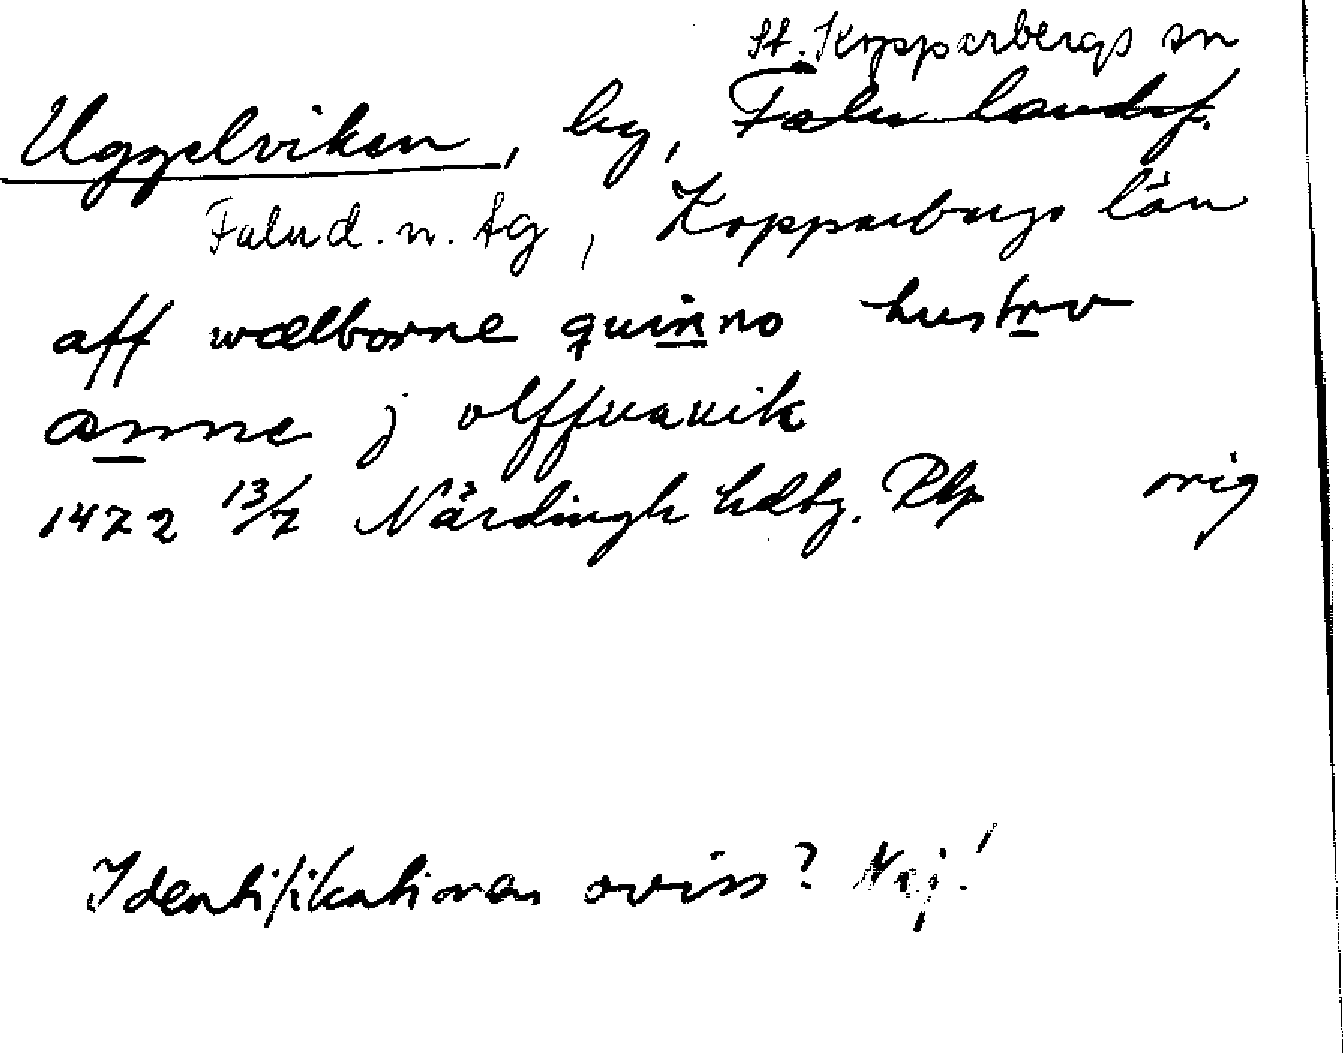 St. Kopparbergs sn
Uggelviken, by, Falu landsf.
Falu d. n. tg, Kopparbergs län
aff wælborne quinno hustrv
anne j vlffuauik
1472 13/7 Närdingh hdbg. Rkp orig
Identifikationen oviss? Nej!